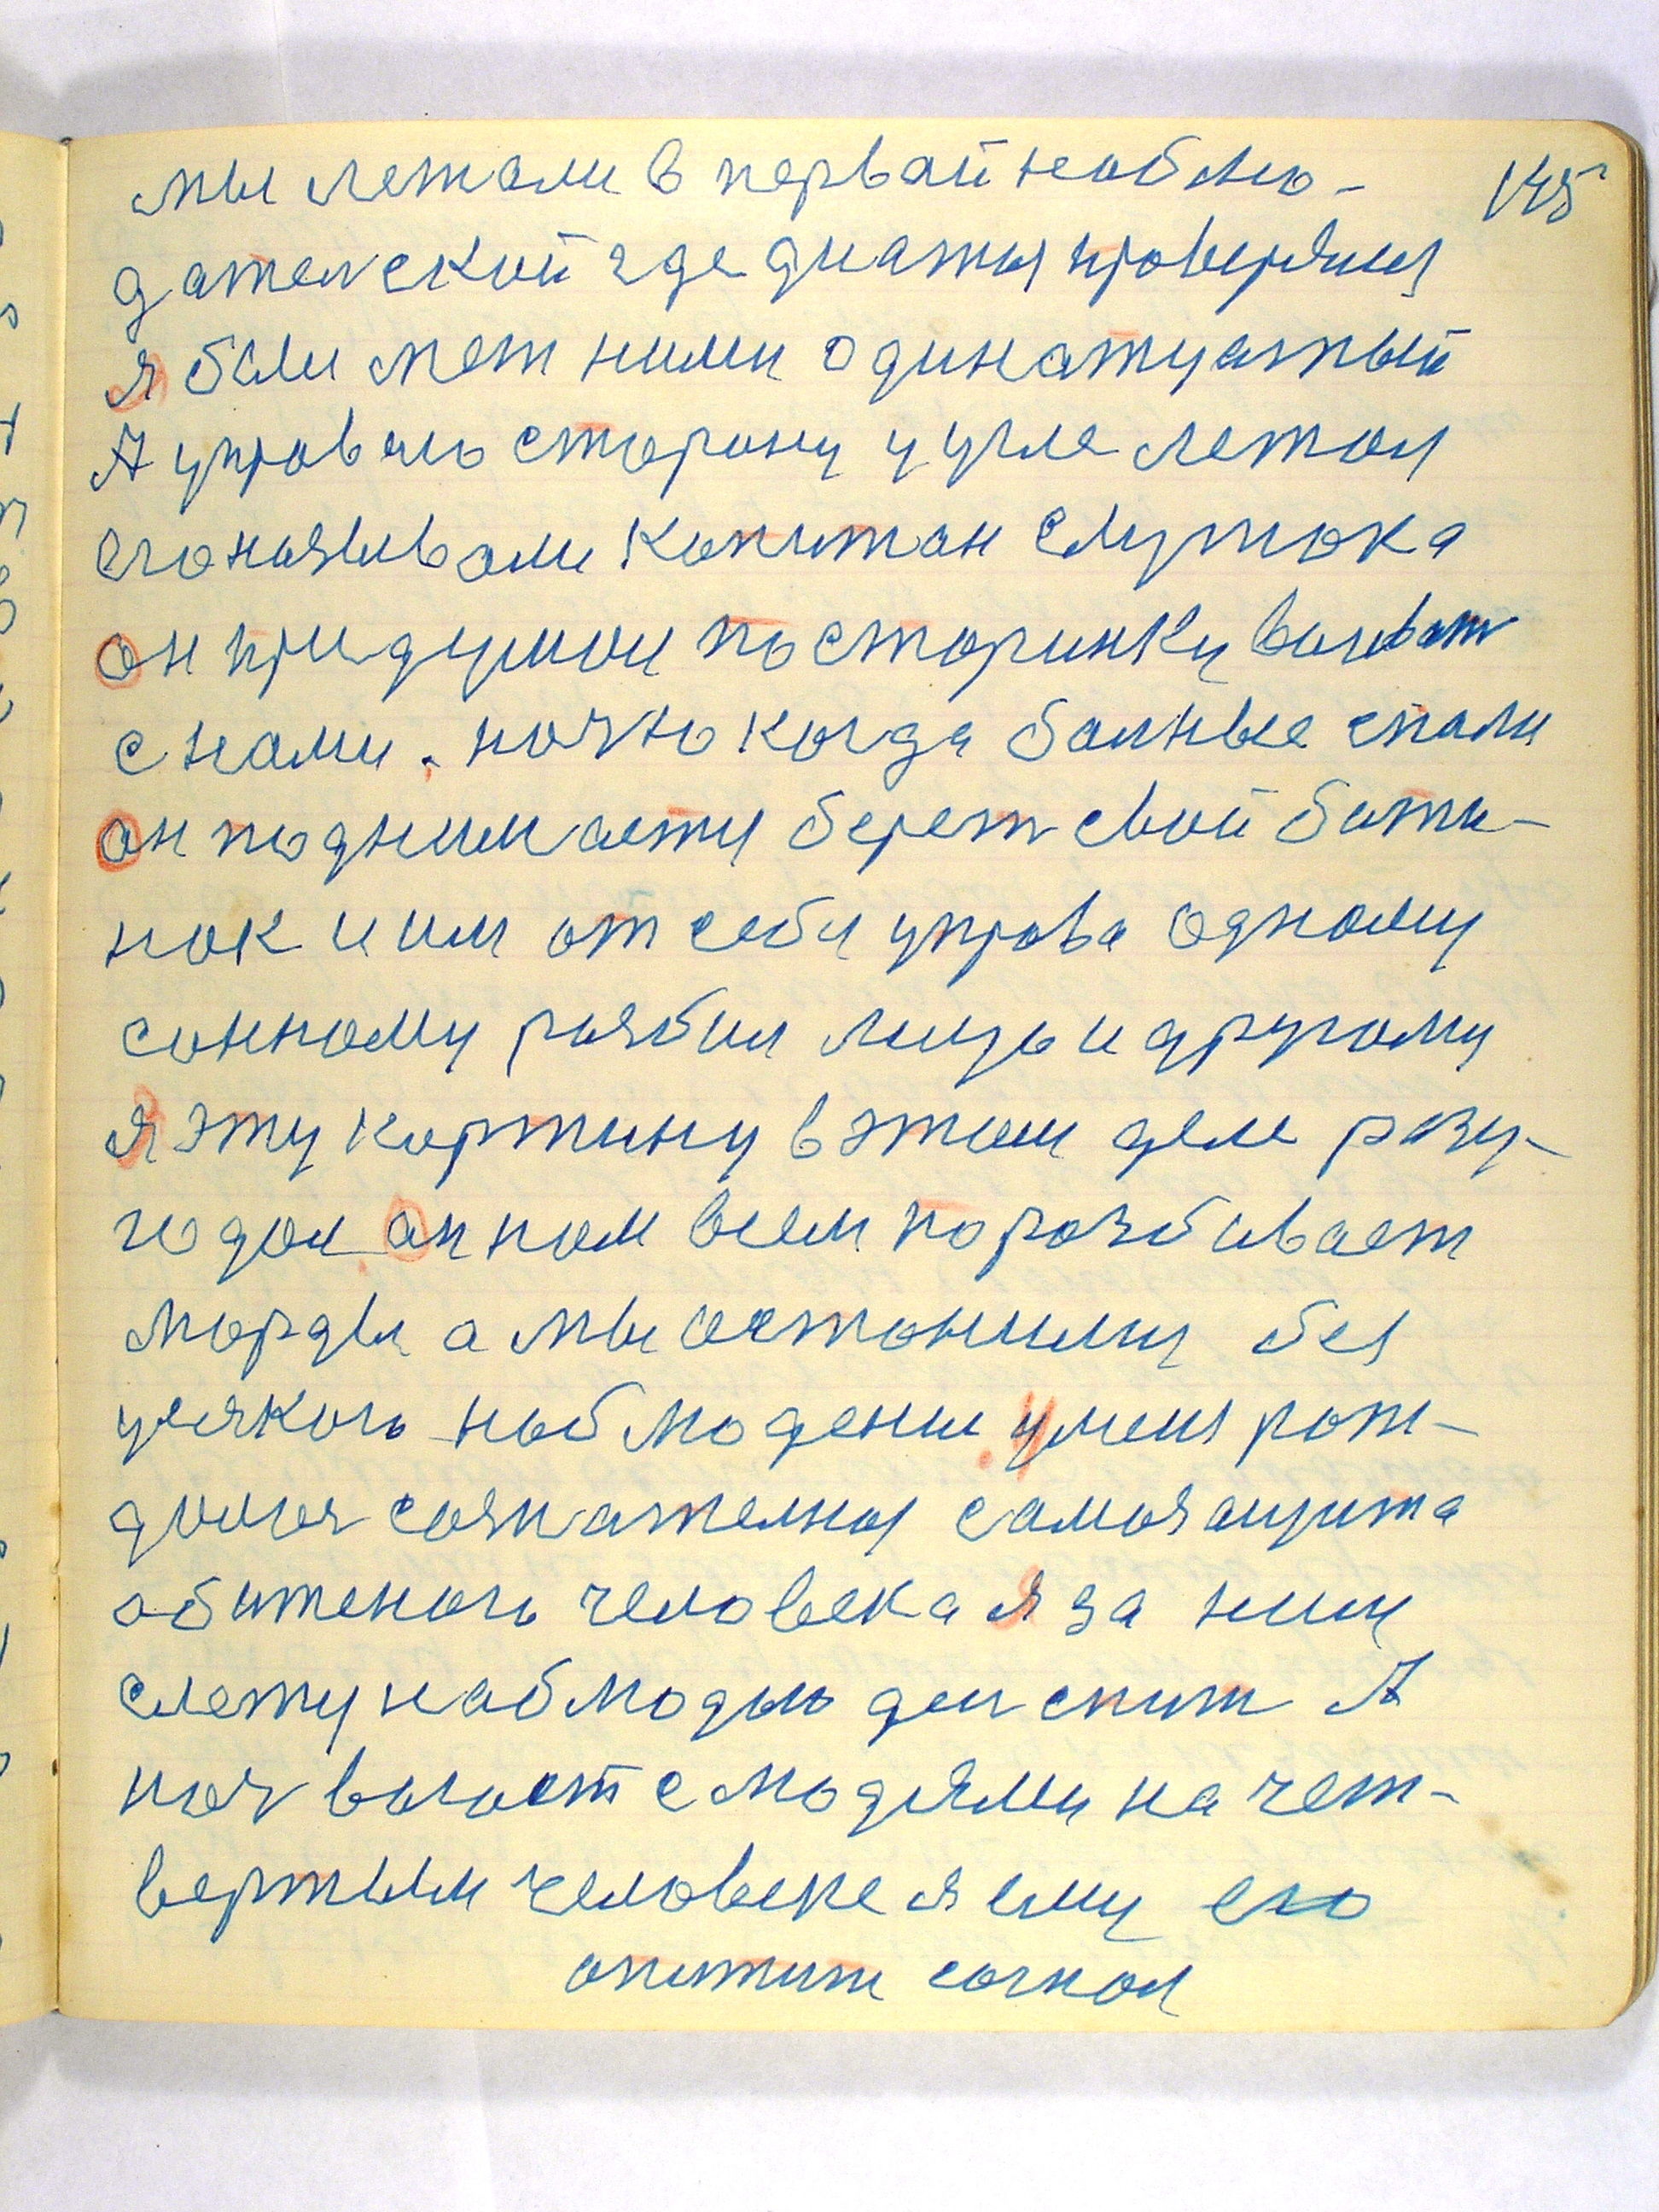 145
мы лежали в первай наблю-
дателской где диатыя проверялися
я были меж ними одинатцатый
А управаю сторону у угле лежал
его названвали капитан Слутжока
он придумал постаринку воевать
с нами. ночью когда балные спали
он поднимаетця берет свой боти-
нок и им от себя управа одному
сонному разбил лицо и другому
я эту картину в этом деле разу-
гадал он нам всем поразбивает
морды а мы астанимця без
усякого наблюдении у меня раж-
дилася сознателная самозащита
абиженого человека я за ним
слежу наблюдаю ден спит А
ноч воюет с людями на чет-
вертым человеке я ему его
апитит согнал